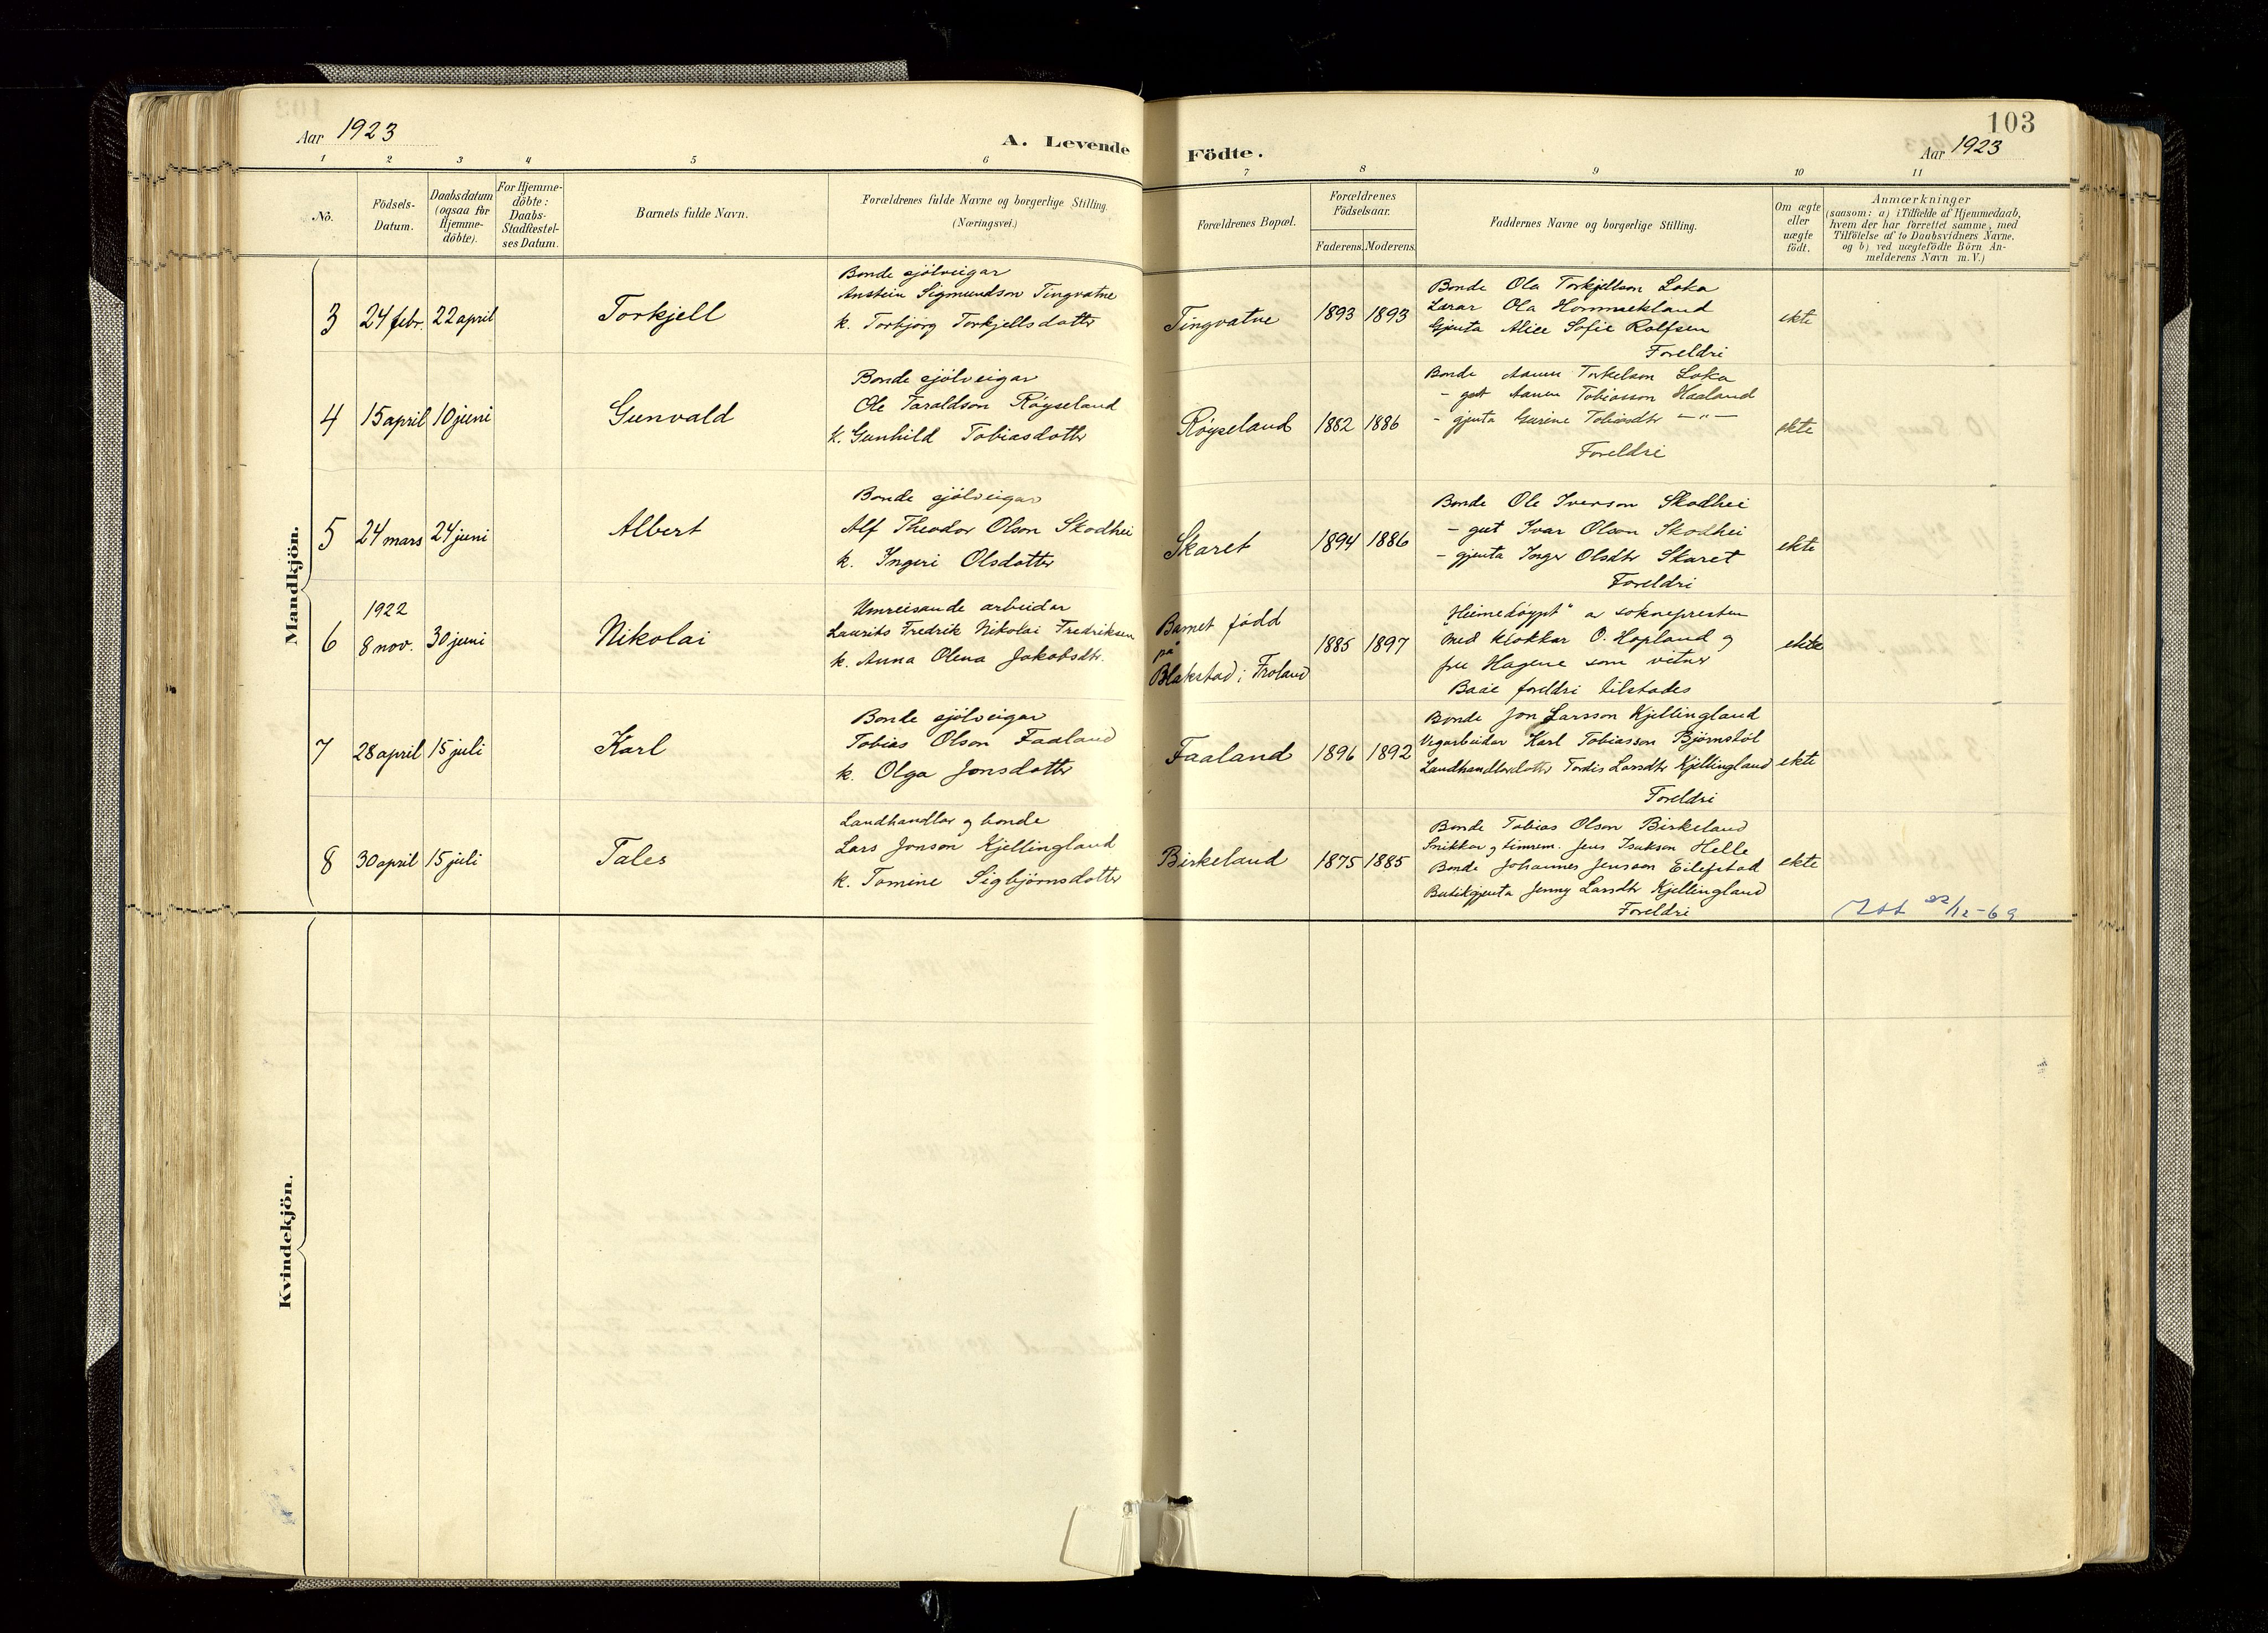 103
Aar 1923
A. Levende Födte.
Aar 1923
1 2 3 4 5 6 7 8 9 10 11
No.
Födsels-
Datum.
Daabsdatum
(ogsaa for
Hjemme-
döbte).
For Hjemme-
döbte:
Daabs-
Stadfæstel-
ses Datum.
Barnets fulde Navn.
Forældrenes fulde Navne og borgerlige Stilling.
(Næringsvei.)
Forældrenes Bopæl.
Forældrenes
Födselsaar.
Faderens. Moderens.
Faddernes Navne og borgerlige Stilling.
Om ægte
eller
uægte
födt.
Anmærkninger
(saasom: a) i Tilfælde af Hjemmedaab,
hvem der har forrettet samme, med
Tilföielse af to Daabsvidners Navne,
og b) ved uægtefödte Börn An-
melderens Navn m. V.)
Mandkjön.
3 24 febr. 22 april Torkjell
Bonde sjölveigar
Anstein Sigmundson Tingvatne
k. Torbjörg Torkjellsdotter
Tingvatne 1893 1893
Bonde Ola Torkjellson Loka
Lærar Ola Hommekland
Gjenta Alice Sofie Rolfsen
Foreldri
ekte
4 15 april 10 juni Gunvald
Bonde sjölveigar
Ole Taraldson Röyseland
k. Gunhild Tobiasdotter
Röyseland 1882 1886
Bonde Aanen Torkelson Loka
- gut Aanen Tobiasson Haaland
- gjenta Gurine Tobiasdtr — " —
Foreldri
ekte
5 24 mars 24 juni Albert
Bonde sjölveigar
Alf Theodor Olson Skodhei
k. Ingeri Olsdotter
Skaret 1894 1886
Bonde Ole Iverson Skodhei
- gut Ivar Olson Skodhei
- gjenta Inger Olsdtr Skaret
Foreldri
ekte
1922
6 8 nov. 30 juni Nikolai
Umreisande arbeidar
Laurits Fredrik Nikolai Fredriksen
k. Anna Olena Jakobsdtr.
Barnet född
på
Blakstad i Froland
1885 1897
"Heimedöypt" a soknepresten
med klokkar O. Hopland og
fru Hagene som vitner
Baae foreldri tilstades
ekte
7 28 april 15 juli Karl
Bonde sjölveigar
Tobias Olson Faaland
k. Olga Jonsdotter
Faaland 1896 1892
Bonde Jon Larsson Kjellingland
Vegarbeidar Karl Tobiasson Björnstöl
Landhandlardotter Tordis Larsdtr Kjellingland
Foreldri
ekte
8 30 april 15 juli Tales
Landhandlar og bonde
Lars Jonson Kjellingland
k. Tomine Sigbjörnsdotter
Birkeland 1875 1885
Bonde Tobias Olson Birkeland
Snikkar og timrem. Jens Isakson Helle
Bonde Johannes Jensson Eilefstad
Butikgjenta Jenny Larsdtr Kjellingland
Foreldri
ekte
22/12-69
Kvindekjön.